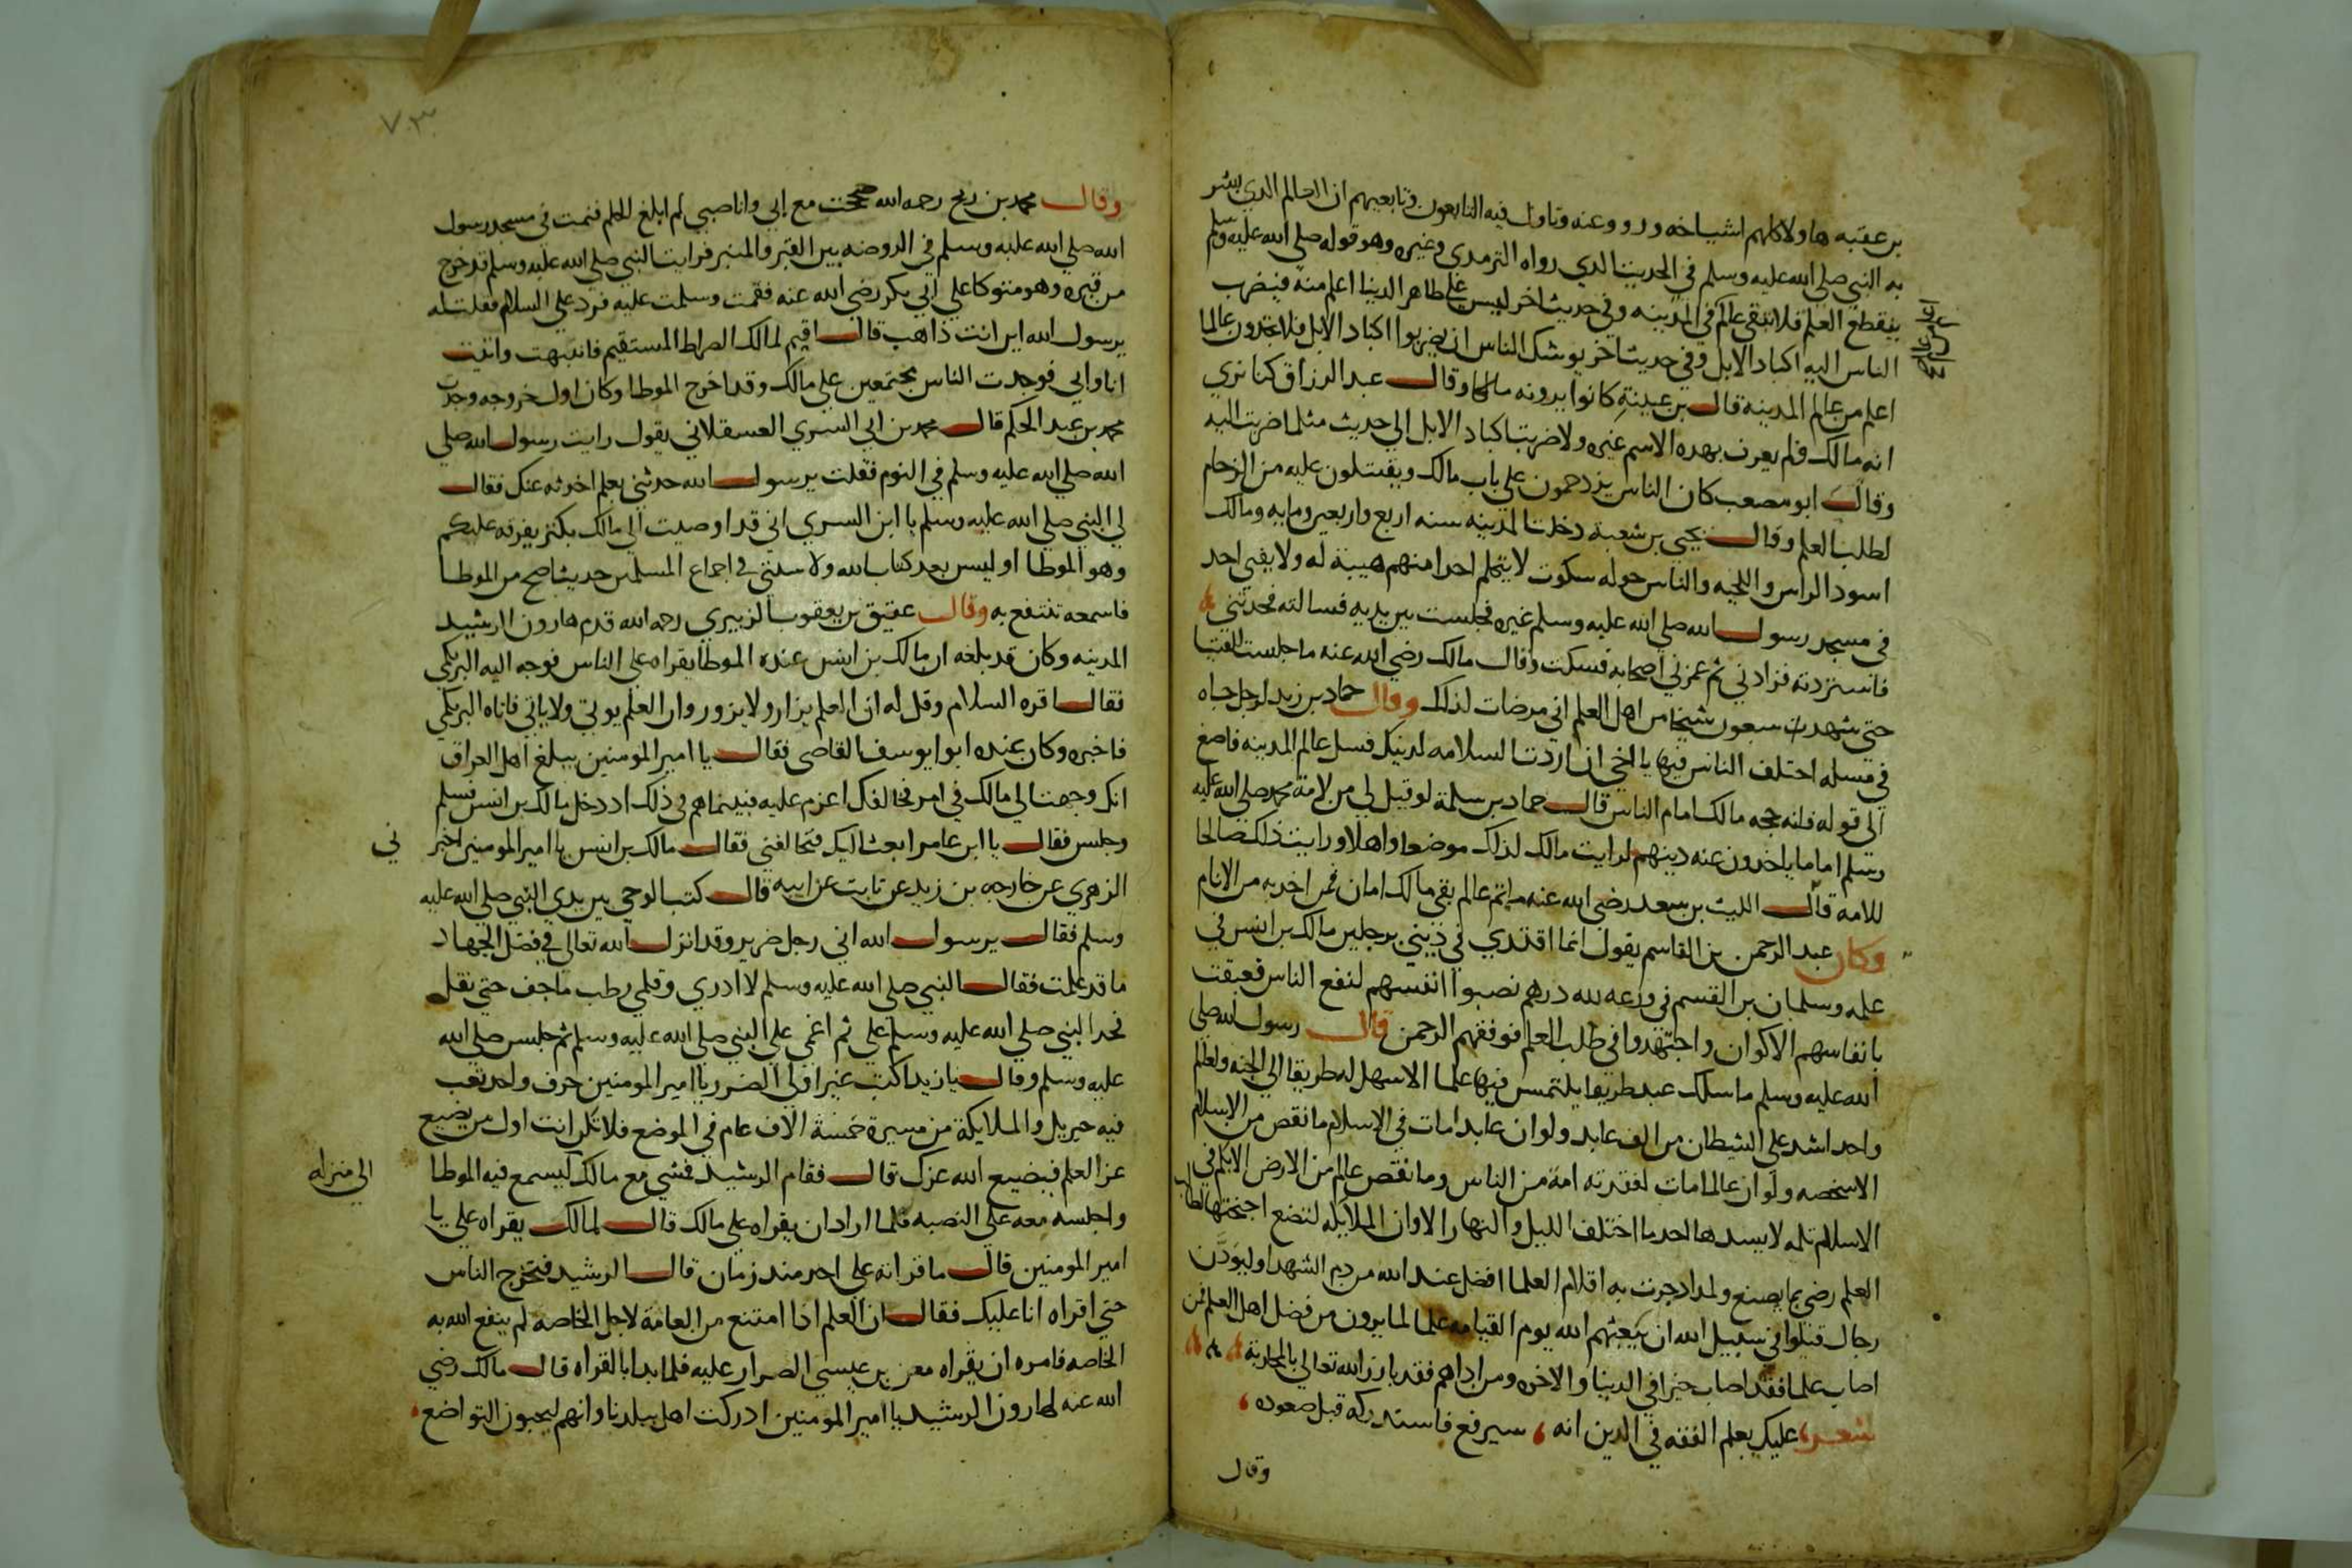 بن عقبه هاولا كلهم اشياخه ورووعنه وتاول فيه التابعون وتابعيهم ان العالم الدي بشر
به النبي صلي الله عليه وسلم في الحديث الدي رواه الترمدي وغيره وهو قوله صلي الله عليه وسلم
ينقطع العلم فلا يبقي عالم في المدينه وفي حديث اخر ليس علي ظاهر الدنيا اعلم منه فيضرب
الناس اليه اكباد الابل وفي حديث اخر يوشك الناس ان يضربوا اكباد الابل فلا يجدون عالما
اعلم من عالم المدينه قال بن عيينة كانوا يرونه مالكا وقال عبد الرزاق كنا نري
انه مالك فلم يعرف بهده الاسم غيره ولا ضربت اكباد الابل الي حديث مثلما ضربت اليه
وقال ابو مصعب كان الناس يزدحمون علي باب مالك ويقتتلون عليه من الزحام
لطلب العلم وقال يحيي بن شعبة دخلت المدينه سنه اربع واربعين ومايه ومالك
اسود الراس واللحيه والناس حوله سكوت لا يتكلم احدا منهم هيبة له ولا يفتي احد
في مسجد رسول الله صلي الله عليه وسلم غيره فجلست بين يديه فسالته فحدثني
فاستزدته فزادني ثم غمزني اصحابه فسكت وقال مالك رضي الله عنه ما جلست للفتيا
حتي شهدت سبعون شيخا من اهل العلم اني مرضات لذلك وقال حماد بن زيد لرجل جاه
في مسله اختلف الناس فيها يا اخي ان اردت السلامه لدينك فسل عالم المدينه فاصغ
الي قوله فانه حجه مالك امام الناس قال حماد بن سلمة لو قيل لي من لامة محمد صلي الله عليه
وسلم اماما ياخدون عنه دينهم لرايت مالك لذلك موضعا واهلا ورايت ذلك صالحا
للامه قال الليث بن سعد رضي الله عنه ما تم عالم بقي مالك امان لمن اخد به من الانام
وكان عبد الرحمن بن القاسم يقول انما اقتدي في ديني برجلين مالك بن انس في
علمه وسلمان بن القسم في ورعه لله درهم نصبوا انفسهم لنفع الناس فعبقت
بانفاسهم الاكوان واجتهدوا في طلب العلم فوفقهم الرحمن قال رسول الله صلي
الله عليه وسلم ما سلك عبد طريقا يلتمس فيها علما الا سهل له طريقا الي الجنه ولعالم
واحد اشد علي الشيطان من الف عابد ولو ان عابدا مات في الاسلام ما نقص من الاسلام
الا شخصه ولو ان عالما مات لفقدته امة من الناس وما نقص عالم من الارض الا ثلم في
الاسلام ثلمه لا يسدها احد ما اختلف الليل والنهار الا وان الملايكه لتضع اجنحتها لطالب
العلم رضي بما يصنع ولمداد جرت به اقلام العلما افضل عند الله من دم الشهدا وليودن
رجال قتلوا في سبيل الله ان يبعثهم الله يوم القيامه علما لما يرون من فضل اهل العلم فمن
اصاب علما فقد اصاب خيرا في الدنيا والاخره ومن اداهم فقد بارز الله تعالي بالمحاربة
شعر عليك بعلم الفقه في الدين انه سيرفع فاستدركه قبل صعوده
وقال
٧٠٣
وقال محمد بن رمح رحمه الله حججت مع ابي وانا صبي لم ابلغ الحلم فنمت في مسجد رسول
الله صلي الله عليه وسلم في الروضه بين القبر والمنبر فرايت النبي صلي الله عليه وسلم قد خرج
من قبره وهو متوكا علي ابي بكر رضي الله عنه فقمت وسلمت عليه فرد علي السلام فقلت له
يرسول الله اين انت ذاهب قال اقيم لمالك الصراط المستقيم فانتبهت واتيت
انا وابي فوجدت الناس مجتمعين علي مالك وقد اخرج الموطا وكان اول خروجه وحدث
محمد بن عبد الحكم قال محمد بن ابي السري العسقلاني يقول رايت رسول الله صلي
الله صلي الله عليه وسلم في النوم فقلت يرسول الله حدثني بعلم احدثه عنك فقال
لي النبي صلي الله عليه وسلم يا ابن السري اني قد اوصيت الي مالك بكنز يفرقه عليكم
وهو الموطا او ليس بعد كتاب الله ولا سنتي في اجماع المسلمين حديث اصح من الموطا
فاسمعه تنتفع به وقال عقيق بن يعقوب الزبيري رحمه الله قدم هارون الرشيد
المدينه وكان قد بلغه ان مالك بن انس عنده الموطا يقراه علي الناس فوجه اليه البرمكي
فقال اقره السلام وقل له ان العلم يزار ولا يزور وان العلم يوتي ولا ياتي فاتاه البرمكي
فاخبره وكان عنده ابوا يوسف القاضي فقال يا امير المومنين يبلغ اهل العراق
انك وجهت الي مالك في امر فخالفك اعزم عليه فبينماهم في ذلك اد دخل مالك بن انس فسلم
وجلس فقال يا ابن عامر ابعث اليك فتخالفني فقال مالك بن انس يا امير المومنين اخبر
ني
الزهري عن خارجه بن زيد عن ثابت عن ابيه قال كتب الوحي بين يدي النبي صلي الله عليه
وسلم فقال يرسول الله اني رجل ضرير وقد انزل الله تعالي في فضل الجهاد
ما قد علمت فقال النبي صلي الله عليه وسلم لا ادري وقلمي رطب ما جف حتي نقل
فخد النبي صلي الله عليه وسلم علي ثم اغمي علي النبي صلي الله عليه وسلم ثم جلس صلي الله
عليه وسلم وقال يا زيد اكتب غير اولي الضرر يا امير المومنين حرف واحد تعب
فيه جبريل والملايكة من مسيرة خمسة الاف عام في الموضع فلا تكن انت اول من يضيع
عز العلم فيضيع الله عزك قال فقام الرشيد فمشي مع مالك ليسمع فيه الموطا
الي منزله
واجلسه معه علي النصبه فلما اراد ان يقراه علي مالك قال لمالك يقراه علي يا
امير المومنين قال ما قراته علي احد مند زمان قال الرشيد فتخرج الناس
حتي اقراه انا عليك فقال ان العلم اذا امتنع من العامة لاجل الخاصه لم ينفع الله به
الخاصه فامره ان يقراه معن بن عيسي الصرار عليه فلما بدا بالقراه قال مالك رضي
الله عنه لهارون الرشيد يا امير المومنين ادركت اهل ببلدنا وانهم ليحبون التواضع